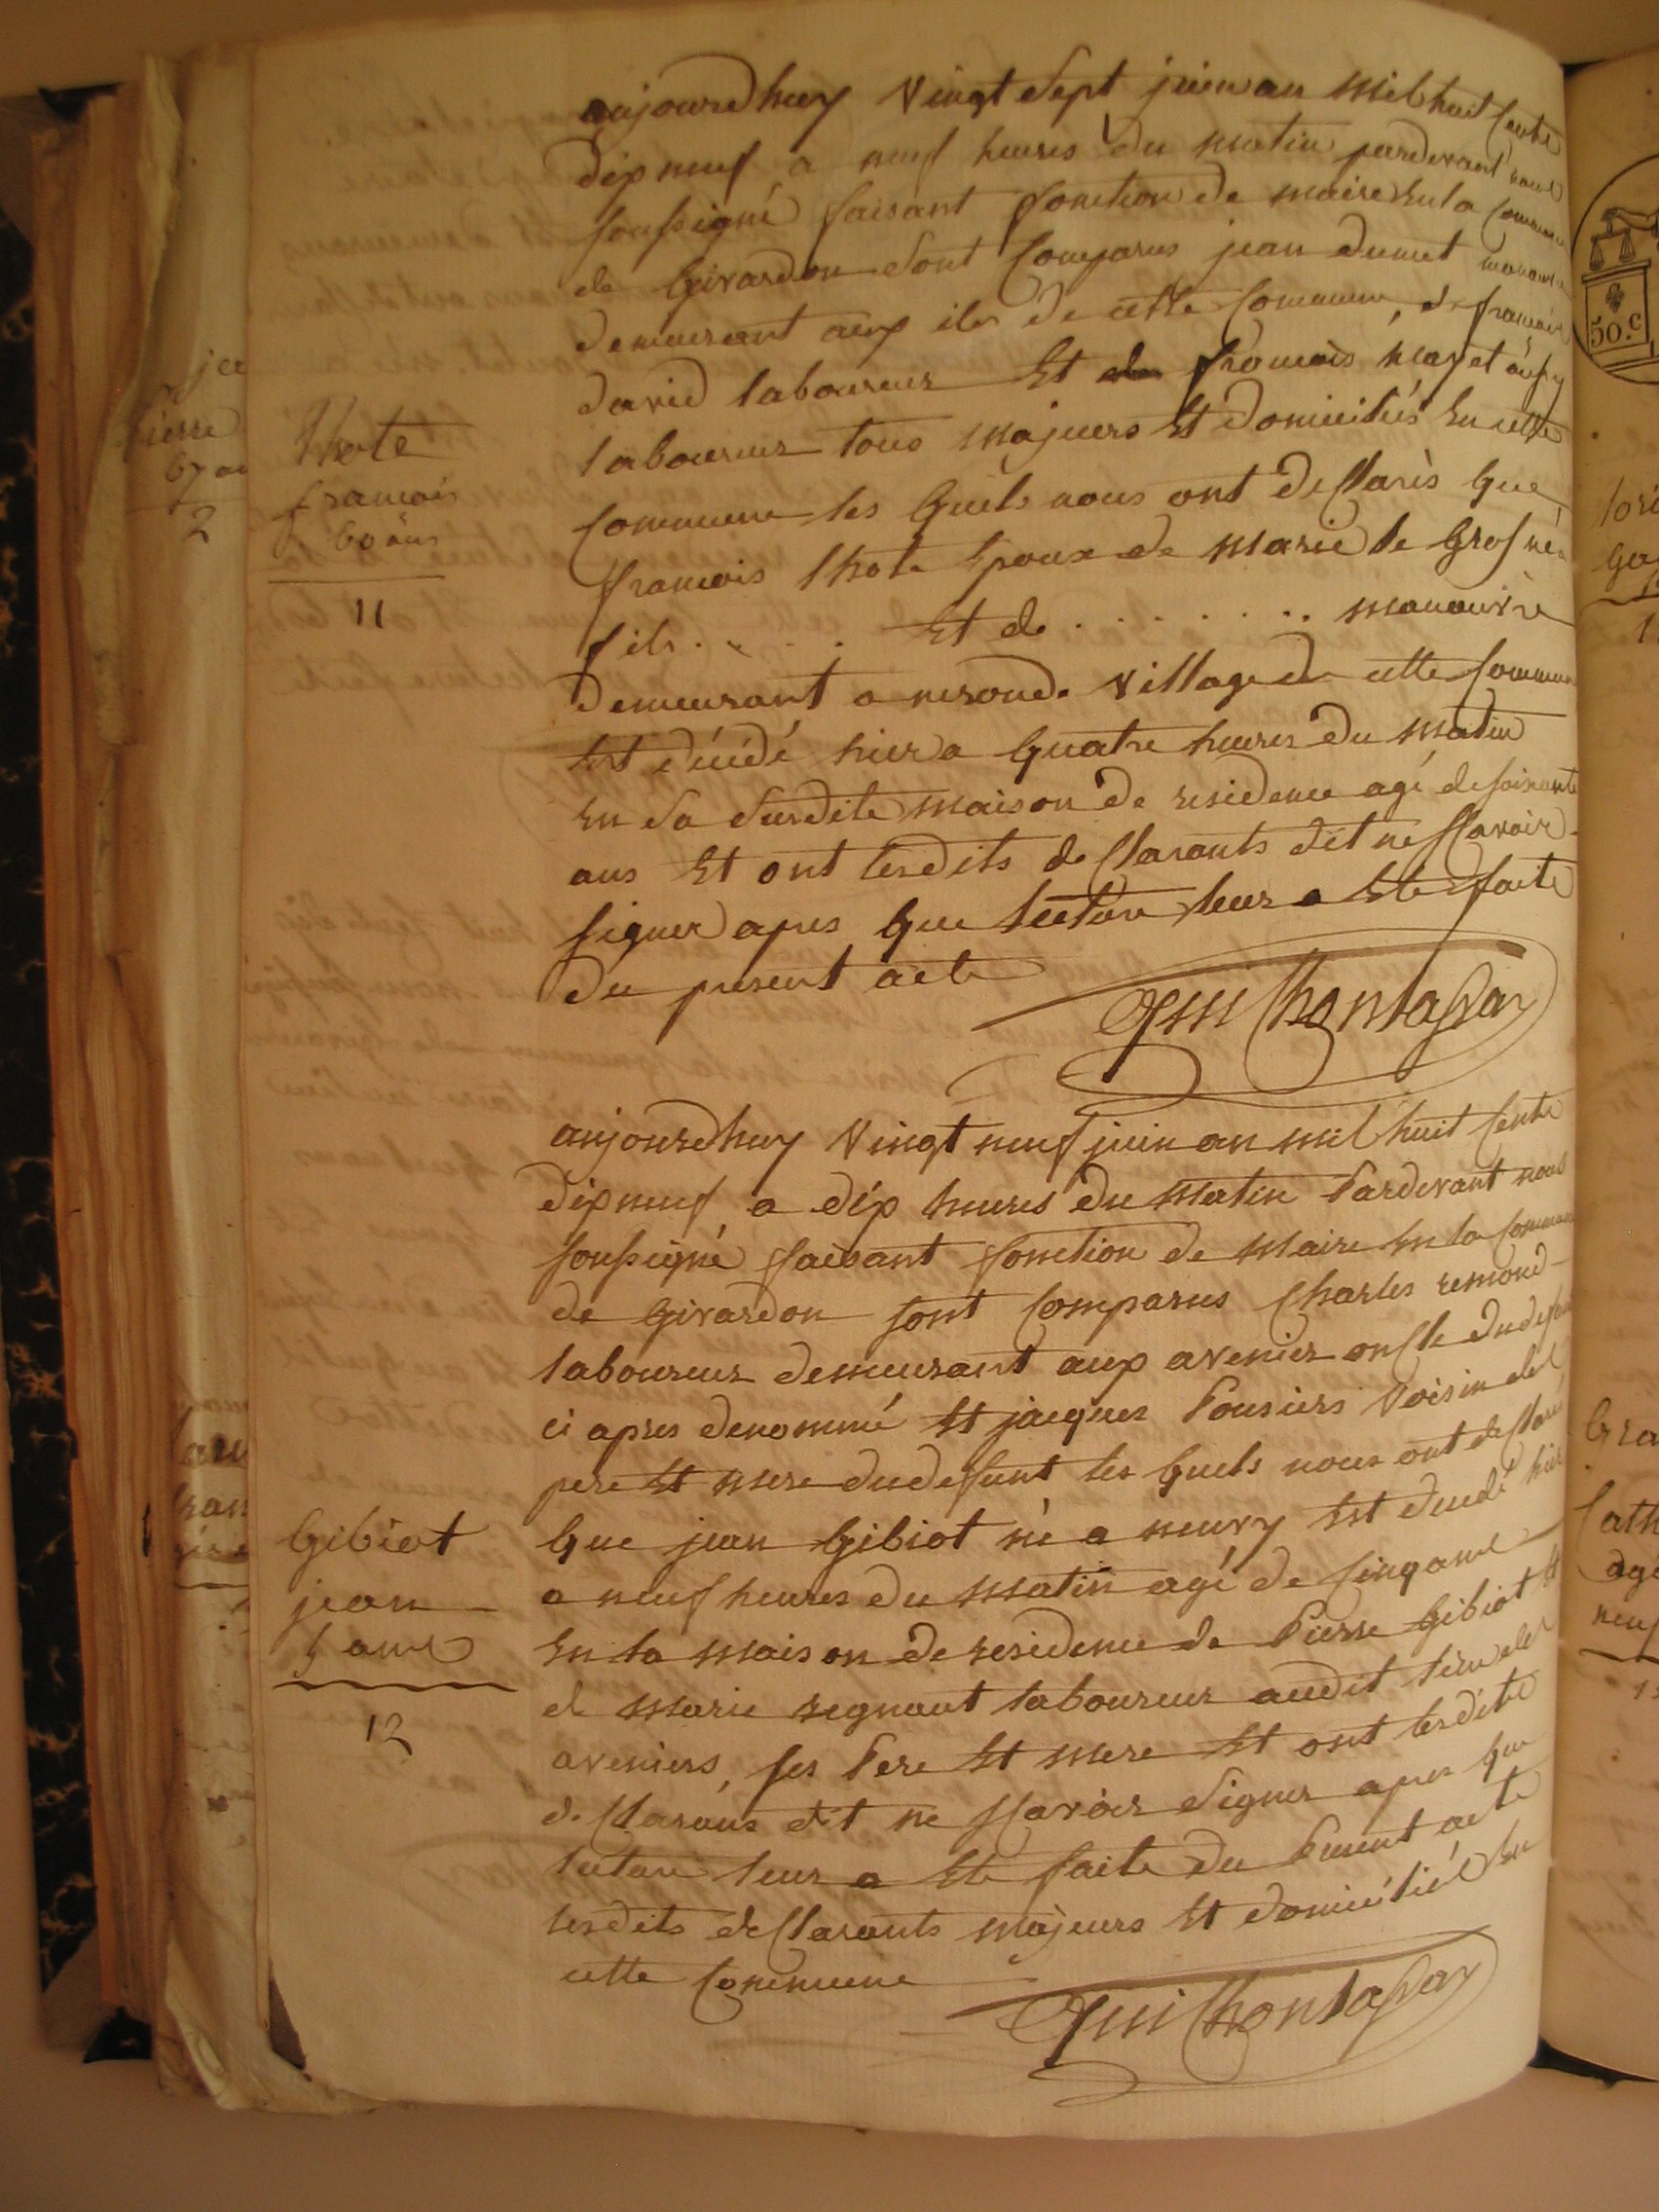 aujourdhuy Vingt Sept juin an Mil huit Cents
dix neuf a neuf heures du matin pardevant nous
soussigné faisant fonction de maire En la Commune
de Girardon sont Comparus jean dumet
demeurant aux iles de cette Commune, et francois
david laboureur Et francois
laboureur tous Majeurs Et Domiciliés En cette
Commune les Quels nous ont desClarés Que
francois lhote Epoux de Marie le Gros né a
fils . . . . Et de . . . . . . . . manouvrie
Demeurant a Village de cette Commune
Est décédé hier a Quatre heures du Matin
En Sa Susdite Maison de residence agé de soixante
ans Et ont lesdits deClarants dit ne sCavoir
signer apres Que lecture leur a Ete faite
du present acte
lhote
francois
60 ans
11
aujourdhuy Vingt neuf juin an mil huit Cents
dix neuf a dix heures du Matin Pardevant nous
soussigné faisant fonction de Maire En la Commune
de Girardon sont Comparus Charles remond
laboureur demeurant aux aveniers onCle du defunt
ci apres denommé Et jacques Voisin des
pere Et mere du defunt les Quels nous ont desClaré
Que jean Gibiot né a neuvy Est décedé hier
a neuf heures du Matin agé de Cinq ans
En la Maison de residence de Pierre Gibiot Et
de Marie regnaut laboureur audit lieu des
aveniers, ses Pere Et Mere Et ont lesdits
desClarans dit ne sCavoir Signer apres Que
lecture leur a Ete faite du Present acte
lesdits desClarants Majeurs Et domiciliés En
cette Commune
Gibiot
jean
5 ans
12
50.c